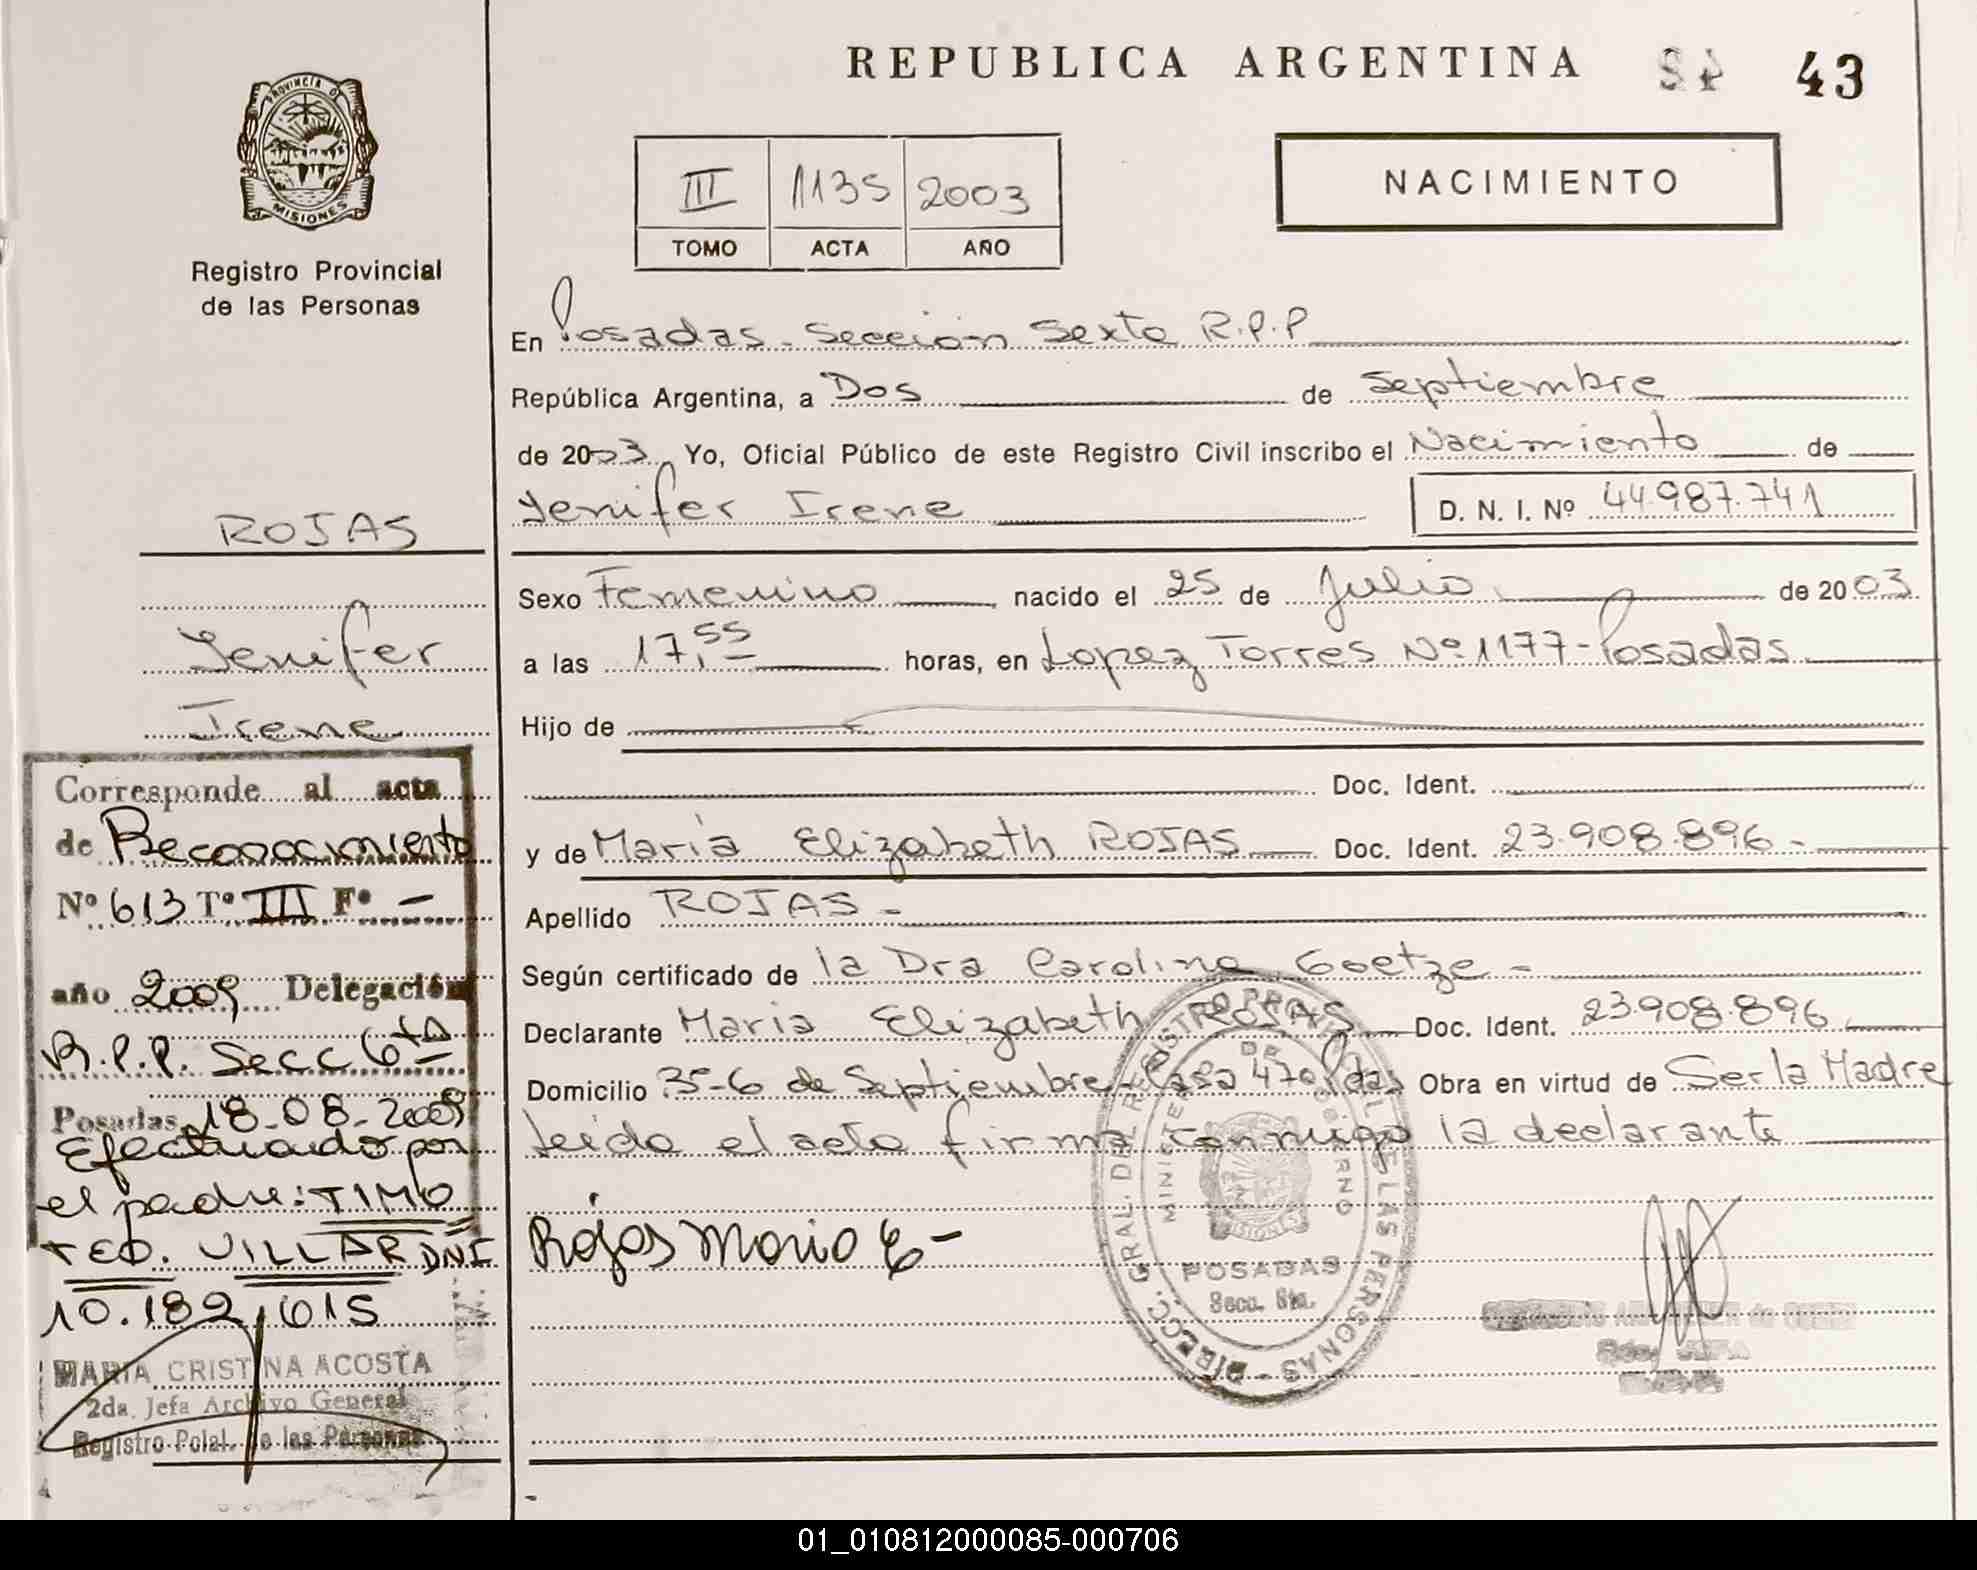 REPUBLICA ARGENTINA 43
PROVINCIA DE
MISIONES
Registro Provincial
de las Personas
III 1135 2003
TOMO ACTA AÑO
NACIMIENTO
En Posadas - Sección Sexta R.P.P
República Argentina, a Dos de Septiembre
de 2003, Yo, Oficial Público de este Registro Civil inscribo el Nacimiento de
Yenifer Irene D. N. I. Nº 44.987.741
Sexo Femenino nacido el 25 de Julio de 2003.
a las 17,55 horas, en Lopez Torres Nº 1177 - Posadas
Hijo de
Doc. Ident.
y de María Elizabeth ROJAS Doc. Ident. 23.908.896 -
Apellido ROJAS -
Según certificado de la Dra Carolina Goetze -
Declarante María Elizabeth ROJAS Doc. Ident. 23.908.896
Domicilio 35-6 de Septiembre - Casa 470 Pdas Obra en virtud de Ser la Madre
Leida el acta firma conmigo la declarante
Rojas Maria E -
DIRECC. GRAL. DEL REGISTRO PROVINCIAL DE LAS PERSONAS
MINISTERIO DE GOBIERNO
MISIONES
POSADAS
Secc. 6ta.
ROJAS
Yenifer
Irene
Corresponde al acta
de Reconocimiento
Nº 613 Tº III Fº -
año 2009 Delegación
R.P.P. Secc 6ta
Posadas, 18-08-2009
Efectuado por
el padre: TIMO
TEO. VILLAR DNI
10.182.615
MARIA CRISTINA ACOSTA
2da. Jefa Archivo General
Registro Pcial. de las Personas
01_010812000085-000706